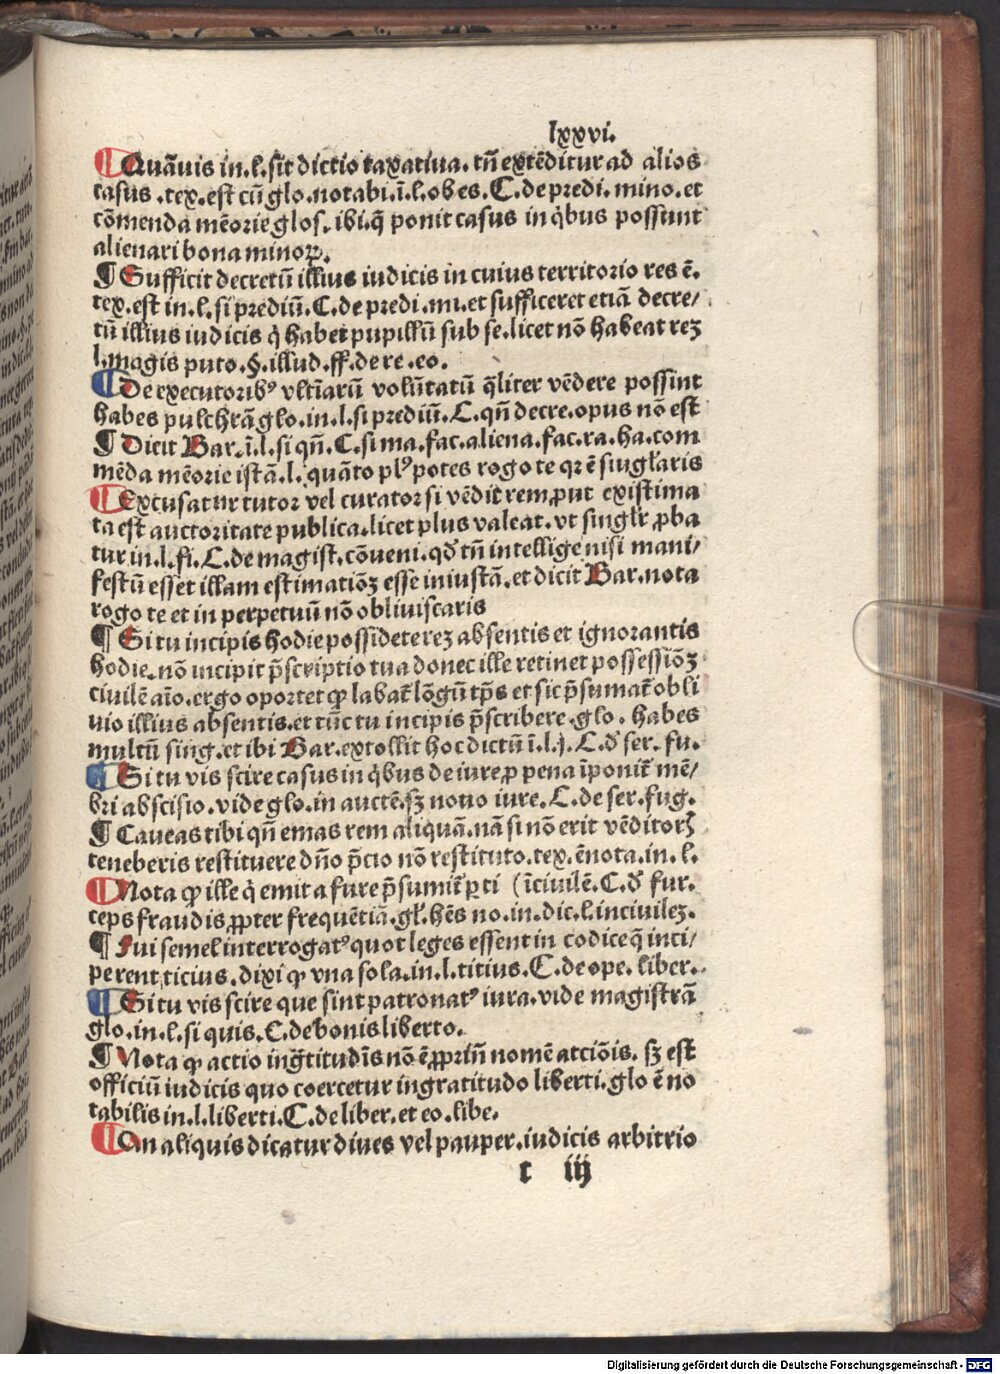 lxxvi.
¶ Quãuis in.l.sit dictio taxatiua. tñ extẽditur ad alios
casus .tex.est cũ glo.notabi.ĩ.l.ob es. C. de predi. mino. et
cõmenda mẽorie glos. ibi.q̃ ponit casus in q̇bus possunt
alienari bona minoꝝ.
¶ Sufficit decretũ illius iudicis in cuius territorio res ẽ.
tex.est in.l.si prediũ. C. de predi.mi.et sufficeret etiã decre/
tũ illius iudicis q̇ habet pupillũ sub se.licet nõ habeat reꝫ
l.magis puto.§.illud.ff.de re.eo.
¶ De executoribꝰ vltĩarũ volũtatũ q̃liter vẽdere possint
habes pulchrã glo.in.l.si prediũ. C. qñ decre.opus nõ est
¶ Dicit Bar.ĩ.l.si qñ.C.si ma.fac.aliena.fac.ra.ha.com
mẽda mẽorie istã.l. quãto plꝰ potes rogo te qꝛ ẽ singl'aris
¶ Excusatur tutor vel curator si vẽdit rem ꝓut existima
ta est auctoritate publica.licet plus valeat.vt singlr̃ ꝓba
tur in.l.fi.C.de magist.cõueni.qđ tñ intellige nisi mani/
festũ esset illam estimatiõꝫ esse iniustã.et dicit Bar.nota
rogo te et in perpetuũ nõ obliuiscaris
¶ Si tu incipis hodie possidere reꝫ absentis et ignorantis
hodie.nõ incipit p̃scriptio tua donec ille retinet possessiõꝫ
ciuilẽ aĩo.ergo oportet ꝙ labat̃ lõgũ tp̃s et sic p̃sumat̃ obli
uio illius absentis.et tũc tu incipis p̃scribere.glo. habes
multũ sing.et ibi Bar.extollit hoc dictũ ĩ.l.j. C.đ ser. fu.
¶ Si tu vis scire casus in q̇bus de iure ꝓ pena ĩponit̃ mẽ/
bri abscisio.vide glo.in auctẽ.sꝫ nouo iure. C.de ser.fug.
¶ Caueas tibi qñ emas rem aliquã.nã si nõ erit vẽditorꝭ
teneberis restituere dño p̃cio nõ restituto.tex.ẽ nota.in.l.
¶ Nota ꝙ ille q̇ emit a fure p̃sumit̃ ꝑti (ĩciuilẽ.C.đ fur.
ceps fraudis ꝓpter frequẽtiã.gl'.hẽs no.in.dic.l.inciuileꝫ.
¶ Fui semel interrogatꝰ quot leges essent in codice q̃ inci/
perent ticius.dixi ꝙ vna sola.in.l.titius. C. de ope. liber.
¶ Si tu vis scire que sint patronatꝰ iura.vide magistrã
glo.in.l.si quis.C.de bonis liberto.
¶ Nota ꝙ actio ingr̃titudĩs nõ ẽ ꝓpriũ nomẽ actiõis. sꝫ est
officiũ iudicis quo coercetur ingratitudo liberti.glo ẽ no
tabilis in.l.liberti.C.de liber.et eo.libe.
¶ An aliquis dicatur diues vel pauper.iudicis arbitrio
c iij
Digitalisierung gefördert durch die Deutsche Forschungsgemeinschaft - DFG